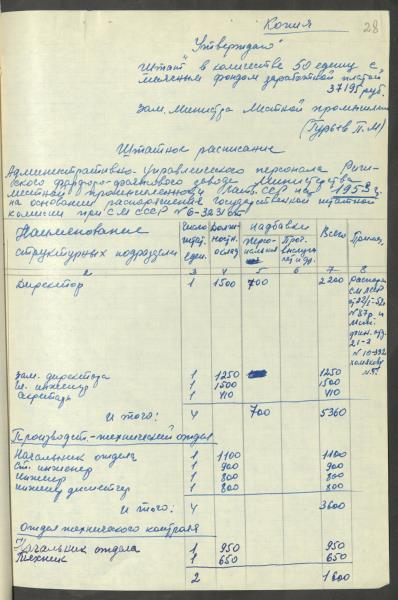 Копия
28
"Утверждаю"
Штат в количестве 50 единиц с
месячным фондом заработной платой
37195 руб.
Зам. Министра Местной промышленн
(Гурьев П.М)
Штатное расписание
Административно-управленческого персонала Риги-
нского фарфоро-фаянсового завода Министерства
местной промышленности Латв.ССР на 1953 г.
на основании распоряжения Государственной штатной
комисии при СМ СССР №6-3А31
Наименование
структурных подраздел
Число штат. един.
Должностн. оклад
надбавки
персональная
Проч. выслуга лет и др.
Всего
Примеч.
2 3 4 5 6 7 8
Директор 1 1500 700 2200
Распоряж
СМ ЛССР
№87р. и
Мин.
фин.
21-2
№10-992
Зам. директора 1 1250 1250
Гл. инженер 1 1500 1500
Секретарь 1 410 410
Итого: 4 700 5360
Производст.-технический отдел
Начальник отдела 1 1100 1100
Ст. инженер 1 900 900
Инженер 1 800 800
инженер диспетчер 1 800 800
Итого: 4 3600
Отдел технического контроля
Начальник отдела 1 950 950
Техник 1 650 650
2 1600